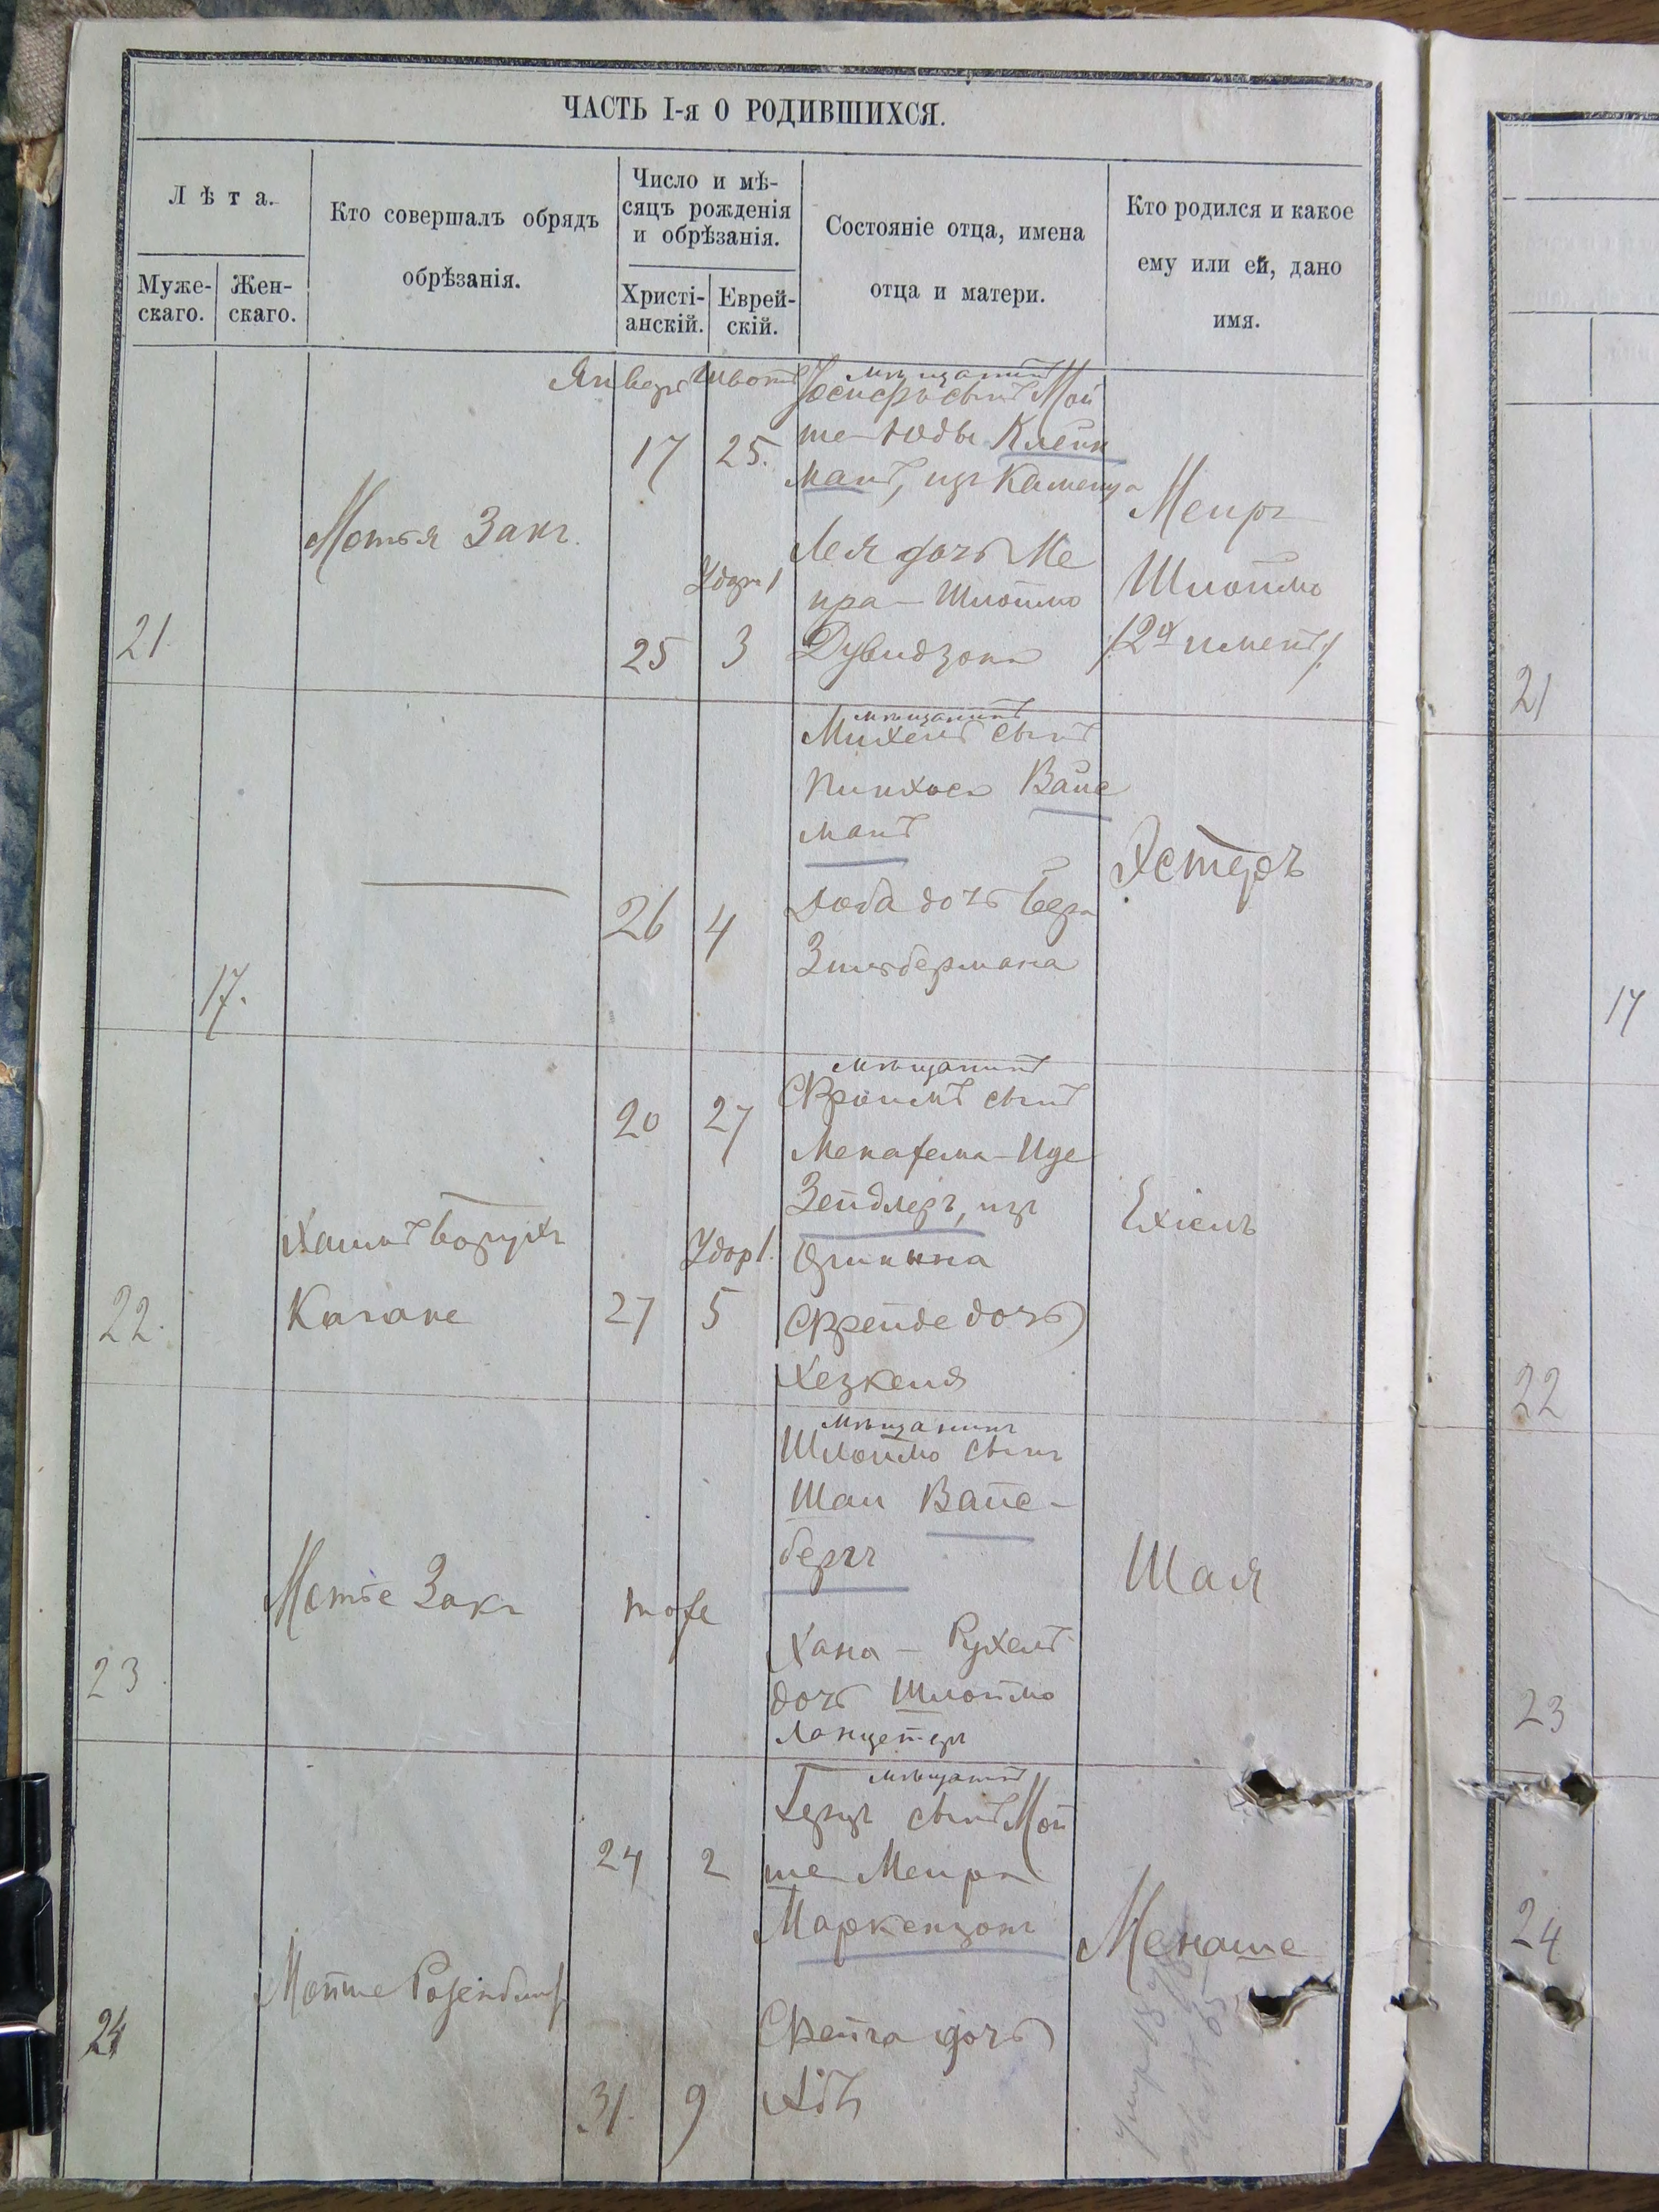 ЧАСТЬ I-я О РОДИВШИХСЯ.
Лѣта.
Муже-
скаго.
Жен-
скаго.
Кто совершалъ обрядъ
обрѣзанія.
Число и мѣ-
сяцъ рожденія
и обрѣзанія.
Христі-
анскій.
Еврей-
скій.
Состояніе отца, имена
отца и матери.
Кто родился и какое
ему или ей, дано
имя.
21.
Мотья Закъ.
Январь Швотъ
17 25.
Ударъ 1
25 3
мѣщанинъ
Іосифъ сынъ Мой
ше-Юды Клейн
манъ, изъ Каменца
Лея дочь Ме
ира-Шлоймо
Дувидзона
Меиръ
Шлоймо
/2х именъ/
17.
26 4
мѣщанинъ
Михель сынъ
Пинхоса Вайс
манъ
Доба дочь Бера
Зильбермана
Эстеръ
22.
Хаимъ Борухъ
Кагане
20 27
Удар 1.
27 5
мѣщанинъ
Фроимъ сынъ
Менахема-Иде
Зейдлеръ, изъ
Фрейде дочь
Хезкеля
Ехіель
23
Мотье Закъ
тоже
мѣщанинъ
Шлоймо сынъ
Шаи Вайс-
бергъ
Хана-Рухель
дочь Шлоймо
Шая
24
Мойше Розенблитъ
24 2
31. 9
мѣщанинъ
Герцъ сынъ Мой
ше Меира
Маркензонъ
Фейга дочь
Абы
Менаше
21
17
22
23
24